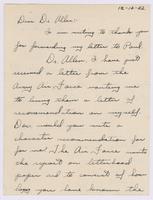 12-14-42
Dear Dr Allen:-
I am writing to thank you
for forwarding my letter to Paul
Dr Allen I have just
received a letter from the
Army Air Force wanting me
to bring them a letter of
recommendation on myself.
Dr would you write a
character recommendation for
for me. The Air Force wants
the report on letterhead
paper and to consist of how
long you have known the